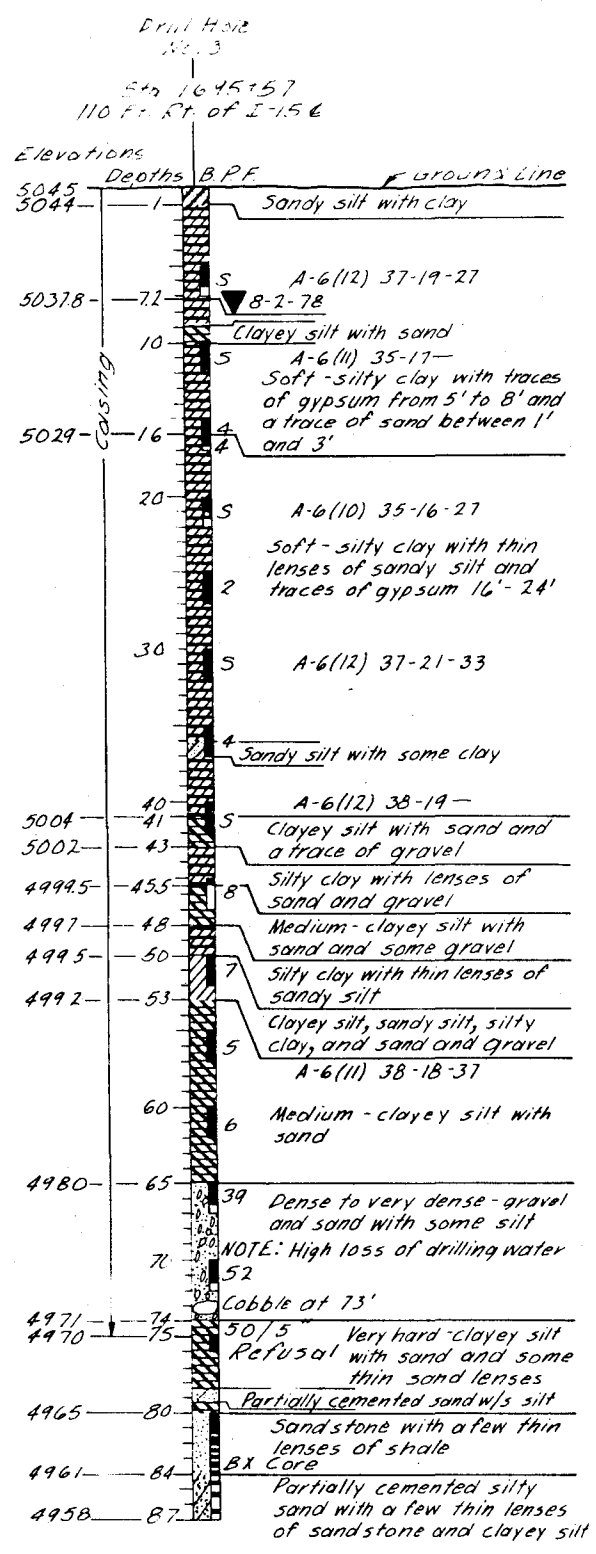 Drill Hole
No. 3
Sta 1645+57
110 Ft. Rt. of I-15 ℄
Elevations
Depths B.P.F.
Ground Line
5045
5044 1
Sandy silt with clay
S A-6(12) 37-19-27
5037.8 7.2 8-2-78
Clayey silt with sand
10
S A-6(11) 35-17-
Soft-silty clay with traces
of gypsum from 5' to 8' and
a trace of sand between 1'
and 3'
Casing
5029 16 4
4
20
S A-6(10) 35-16-27
Soft-silty clay with thin
lenses of sandy silt and
traces of gypsum 16'-24'
2
30
S A-6(12) 37-21-33
4
Sandy silt with some clay
40
A-6(12) 38-19-
5004 41 S
Clayey silt with sand and
a trace of gravel
5002 43
4999.5 45.5 8
Silty clay with lenses of
sand and gravel
4997 48
Medium-clayey silt with
sand and some gravel
4995 50
7
Silty clay with thin lenses of
sandy silt
4992 53
Clayey silt, sandy silt, silty
clay, and sand and gravel
5
A-6(11) 38-18-37
60
6
Medium-clayey silt with
sand
4980 65
39
Dense to very dense-gravel
and sand with some silt
NOTE: High loss of drilling water
52
Cobble at 73'
4971 74
4970 75
50/5
Refusal
Very hard-clayey silt
with sand and some
thin sand lenses
Partially cemented sand w/s silt
4965 80
Sandstone with a few thin
lenses of shale
BX Core
4961 84
Partially cemented silty
sand with a few thin lenses
of sandstone and clayey silt
4958 87